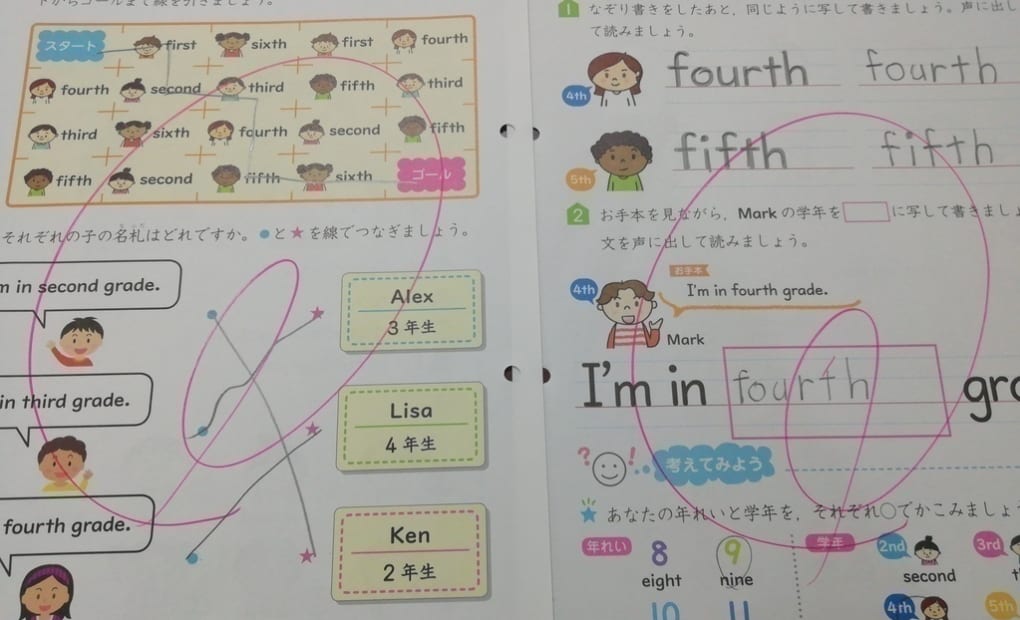 スタート first sixth first fourth
fourth second third fifth third
third sixth fourth second fifth
fifth second fifth sixth ゴール
それぞれの子の名札はどれですか。●と★を線でつなぎましょう。
m in second grade.
in third grade.
fourth grade.
Alex
3年生
Lisa
4年生
Ken
2年生
1 なぞり書きをしたあと、同じように写して書きましょう。声に出し
て読みましょう。
4th fourth fourth
5th fifth fifth
2 お手本を見ながら、Markの学年を□に写して書きましょ
文を声に出して読みましょう。
お手本
4th I'm in fourth grade.
Mark
I'm in fourth gr
?!
考えてみよう
★あなたの年れいと学年を、それぞれ○でかこみましょ
年れい 8 9 学年 2nd 3rd
eight nine second
10 11 4th 5th